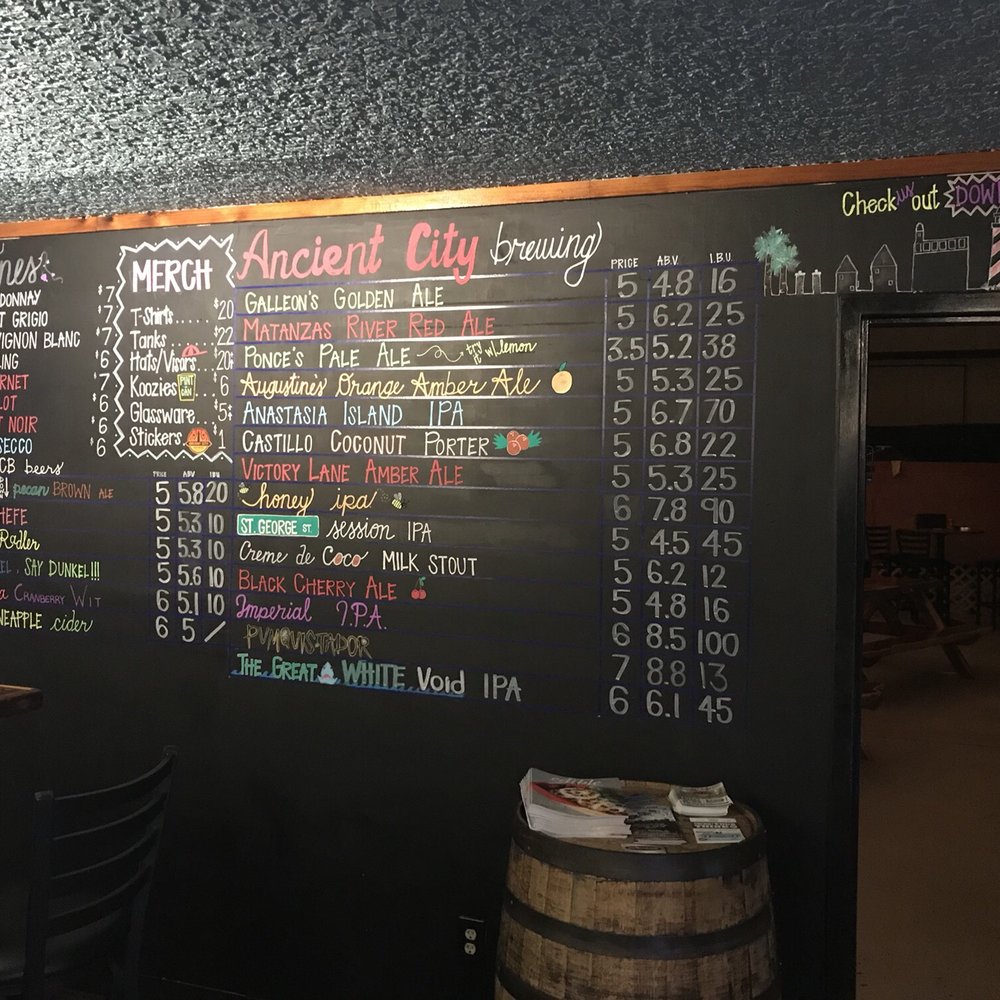 Check us out DOW
DONNAY $7
GRIGIO $7
VIGNON BLANC $7
LING $6
RNET 7
LOT $6
NOIR $6
SECCO $6
CB beers
MERCH
T-Shirts..... $20
Tanks..... $22
Hats/Visors... 20
Koozies PINT CAN $6
Glassware... $5
Stickers $1
PRICE ABV
pecan BROWN ALE 5 5.8 20
HEFE 5 5.3 10
Radler 5 5.3 10
EL, SAY DUNKEL!!! 5 5.6 10
a CRANBERRY WIT 6 5.1 10
NEAPPLE cider 6 5 /
Ancient City brewing
PRICE A.B.V. I.B.U.
GALLEON'S GOLDEN ALE 5 4.8 16
MATANZAS RIVER RED ALE 5 6.2 25
PONCE'S PALE ALE try it w/ lemon 3.5 5.2 38
Augustine's Orange Amber Ale 5 5.3 25
ANASTASIA ISLAND IPA 5 6.7 70
CASTILLO COCONUT PORTER 5 6.8 22
VICTORY LANE AMBER ALE 5 5.3 25
honey ipa 6 7.8 90
ST. GEORGE ST. session IPA 5 4.5 45
Creme de Coco MILK STOUT 5 6.2 12
BLACK CHERRY ALE 5 4.8 16
Imperial I.P.A. 6 8.5 100
PUMQUISTADOR 7 8.8 13
THE GREAT WHITE Void IPA 6 6.1 45